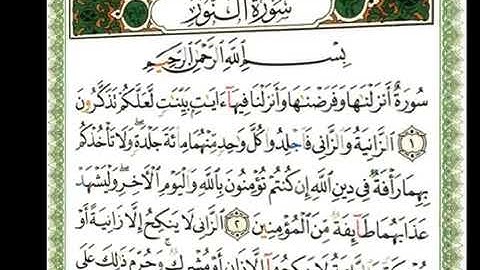 سُورَةُ النُّورِ
بِسْمِ اللَّهِ الرَّحْمَٰنِ الرَّحِيمِ
سُورَةٌ أَنزَلْنَٰهَا وَفَرَضْنَٰهَا وَأَنزَلْنَا فِيهَآ ءَايَٰتٍۭ بَيِّنَٰتٍ لَّعَلَّكُمْ تَذَكَّرُونَ
١ ٱلزَّانِيَةُ وَٱلزَّانِى فَٱجْلِدُوا۟ كُلَّ وَٰحِدٍ مِّنْهُمَا مِا۟ئَةَ جَلْدَةٍ ۖ وَلَا تَأْخُذْكُم
بِهِمَا رَأْفَةٌ فِى دِينِ ٱللَّهِ إِن كُنتُمْ تُؤْمِنُونَ بِٱللَّهِ وَٱلْيَوْمِ ٱلْءَاخِرِ ۖ وَلْيَشْهَدْ
عَذَابَهُمَا طَآئِفَةٌ مِّنَ ٱلْمُؤْمِنِينَ ٢ ٱلزَّانِى لَا يَنكِحُ إِلَّا زَانِيَةً أَوْ
مُشْرِكَةً وَٱلزَّانِيَةُ لَا يَنكِحُهَآ إِلَّا زَانٍ أَوْ مُشْرِكٌ ۚ وَحُرِّمَ ذَٰلِكَ عَلَى